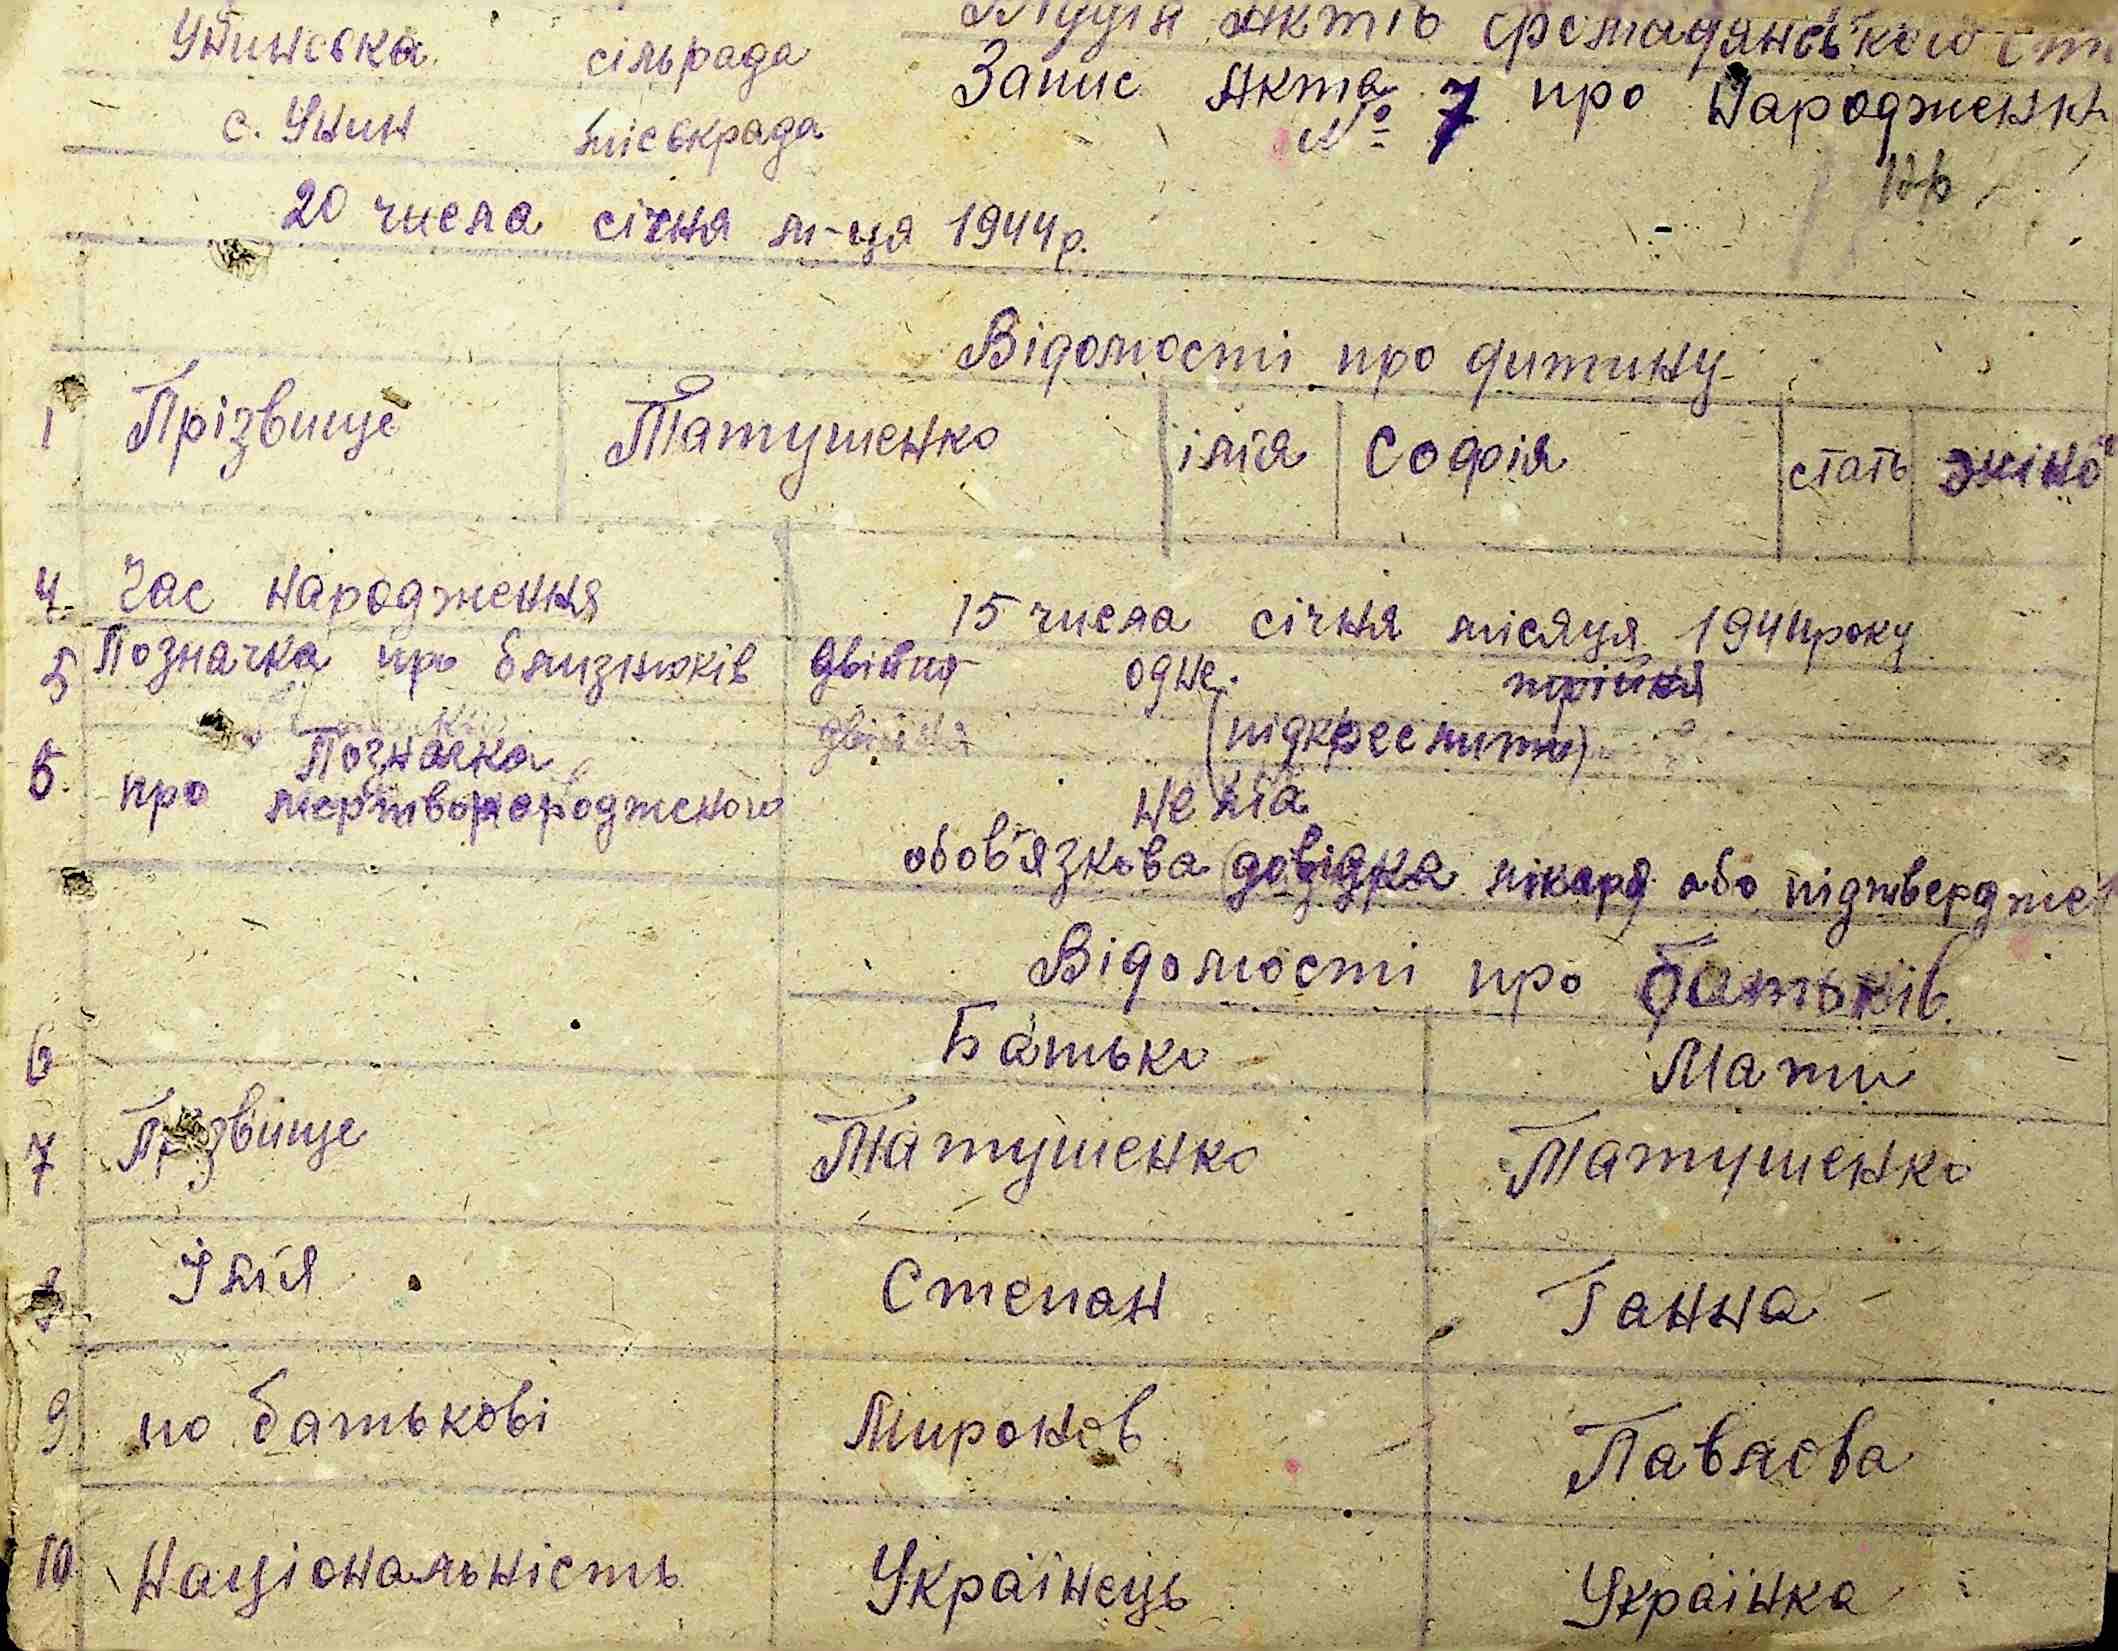 Унинська сільрада
Актів громадянського
Запис Акта № 7 про Народження
с. Унин міськрада
20 числа січня м-ця 1944 р.
Відомості про дитину
1 Прізвище Татушенко ім'я Софія стать жіно
4. Час народження 15 числа січня місяця 1944 року
5 Позначка про близнюків двійно одне. трійня
двійня (підкреслити)
5. Позначка
про мертвонародженого нема
обов'язкова довідка лікаря або підтвердже
Відомості про батьків.
6 Батько Мати
7 Прізвище Татушенко Татушенко
8 Ім'я Степан Ганна
9 по батькові Миронов Павлова
10 Національність Українець Українка